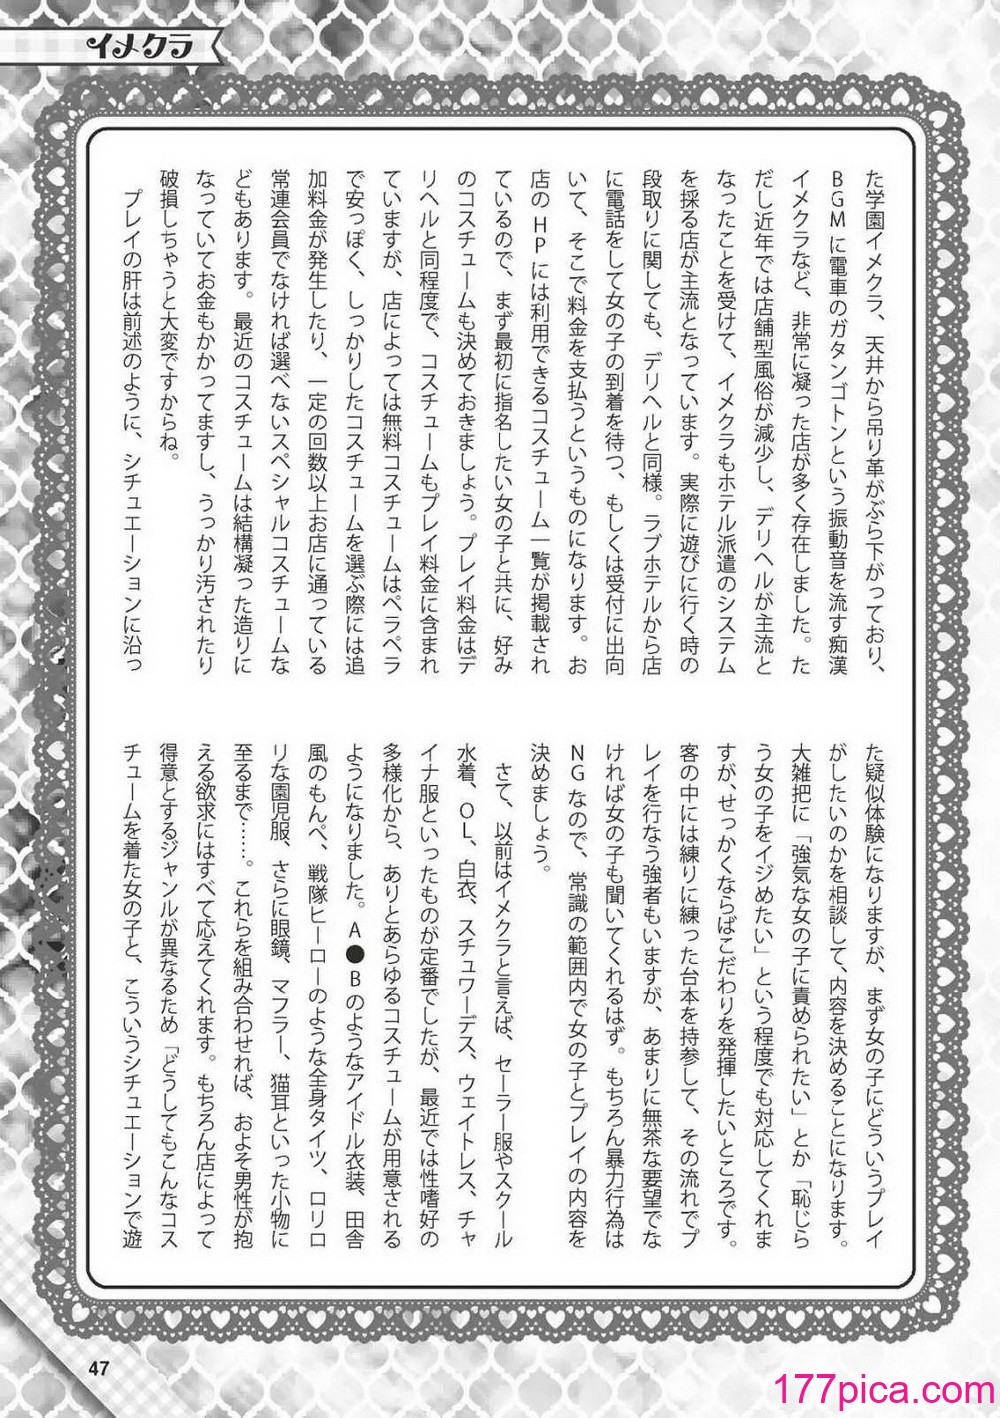 イメクラ
た学園イメクラ、天井から吊り革がぶら下がっており、
BGMに電車のガタンゴトンという振動音を流す痴漢
イメクラなど、非常に凝った店が多く存在しました。た
だし近年では店舗型風俗が減少し、デリヘルが主流と
なったことを受けて、イメクラもホテル派遣のシステム
を採る店が主流となっています。実際に遊びに行く時の
段取りに関しても、デリヘルと同様。ラブホテルから店
に電話をして女の子の到着を待つ、もしくは受付に出向
いて、そこで料金を支払うというものになります。お
店のHPには利用できるコスチューム一覧が掲載され
ているので、まず最初に指名したい女の子と共に、好み
のコスチュームも決めておきましょう。プレイ料金はデ
リヘルと同程度で、コスチュームもプレイ料金に含まれ
ていますが、店によっては無料コスチュームはペラペラ
で安っぽく、しっかりしたコスチュームを選ぶ際には追
加料金が発生したり、一定の回数以上お店に通っている
常連会員でなければ選べないスペシャルコスチュームな
どもあります。最近のコスチュームは結構凝った造りに
なっていてお金もかかってますし、うっかり汚されたり
破損しちゃうと大変ですからね。
プレイの肝は前述のように、シチュエーションに沿っ
た疑似体験になりますが、まず女の子にどういうプレイ
がしたいのかを相談して、内容を決めることになります。
大雑把に「強気な女の子に責められたい」とか「恥じら
う女の子をイジめたい」という程度でも対応してくれま
すが、せっかくならばこだわりを発揮したいところです。
客の中には練りに練った台本を持参して、その流れでプ
レイを行なう強者もいますが、あまりに無茶な要望でな
ければ女の子も聞いてくれるはず。もちろん暴力行為は
NGなので、常識の範囲内で女の子とプレイの内容を
決めましょう。
さて、以前はイメクラと言えば、セーラー服やスクール
水着、OL、白衣、スチュワーデス、ウェイトレス、チャ
イナ服といったものが定番でしたが、最近では性嗜好の
多様化から、ありとあらゆるコスチュームが用意される
ようになりました。A●Bのようなアイドル衣装、田舎
風のもんぺ、戦隊ヒーローのような全身タイツ、ロリロ
リな園児服、さらに眼鏡、マフラー、猫耳といった小物に
至るまで……。これらを組み合わせれば、およそ男性が抱
える欲求にはすべて応えてくれます。もちろん店によって
得意とするジャンルが異なるため「どうしてもこんなコス
チュームを着た女の子と、こういうシチュエーションで遊
47
177pica.com